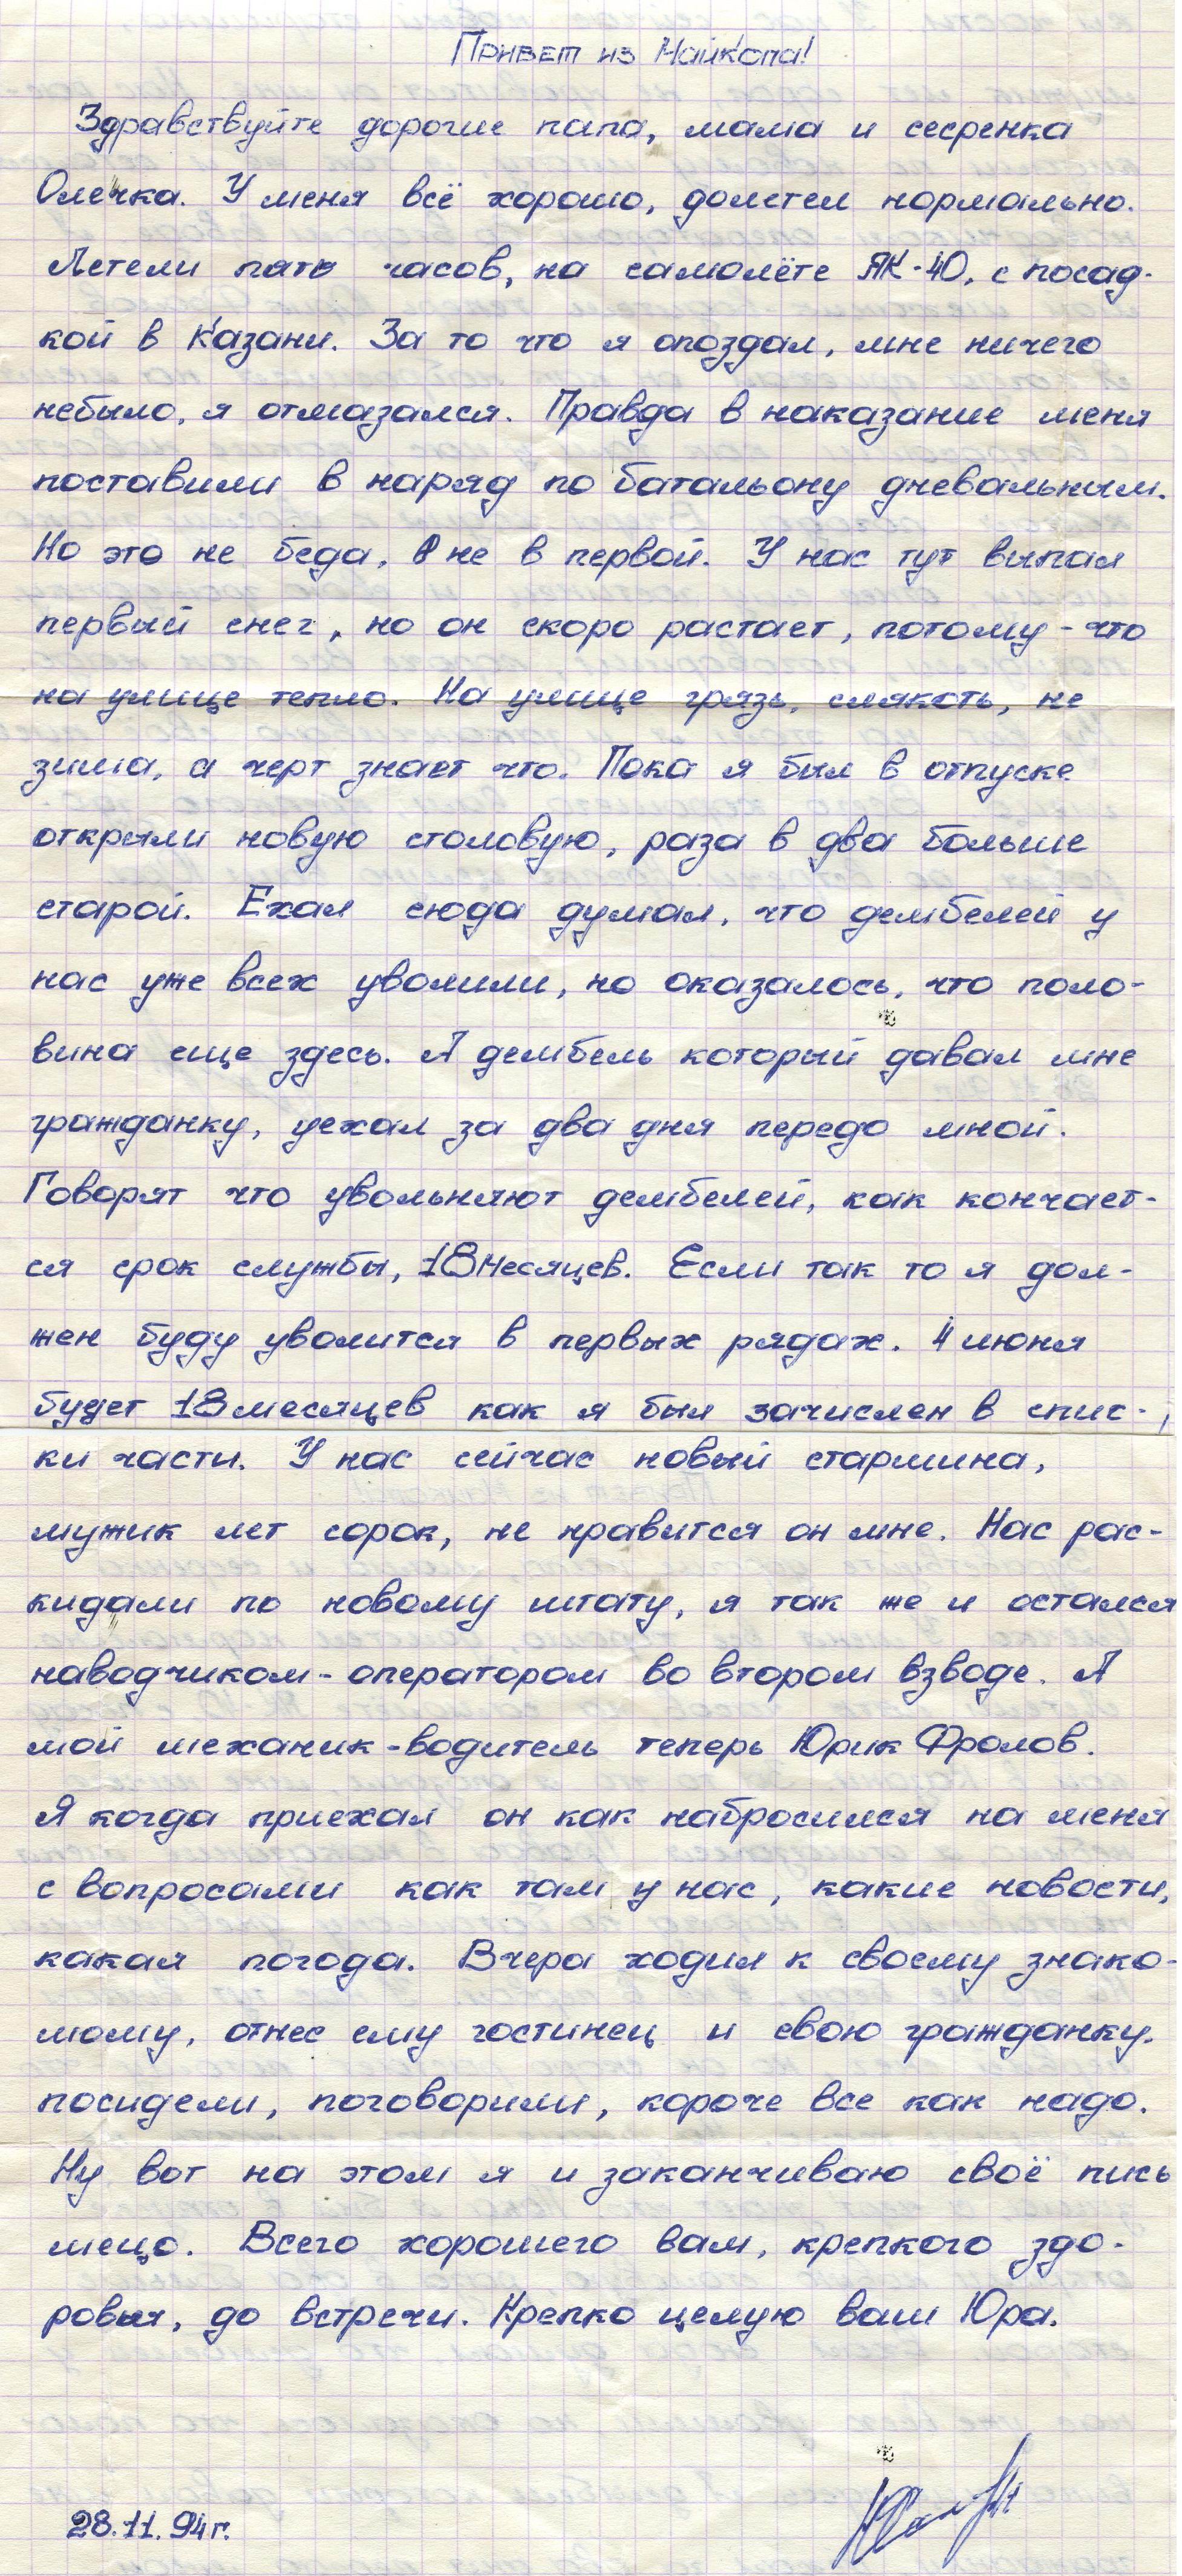 Привет из Майкопа!
Здравствуйте дорогие папа, мама и сесренка
Олечка. У меня всё хорошо, долетел нормально.
Летели пять часов, на самолёте ЯК-40, с посад-
кой в Казани. За то что я опоздал, мне ничего
небыло, я отмазался. Правда в наказание меня
поставили в наряд по батальону дневальным.
Но это не беда, не в первой. У нас тут выпал
первый снег, но он скоро растает, потому-что
на улице тепло. На улице грязь, слякоть, не
зима, а черт знает что. Пока я был в отпуске
открыли новую столовую, раза в два больше
старой. Ехал сюда думал, что дембелей у
нас уже всех уволили, но оказалось, что поло-
вина еще здесь. А дембель который давал мне
гражданку, уехал за два дня передо мной.
Говорят что увольняют дембелей, как кончает-
ся срок службы, 18 месяцев. Если так то я дол-
жен буду уволится в первых рядах. 4 июня
будет 18 месяцев как я был зачислен в спис-
ки части. У нас сейчас новый старшина,
мужик лет сорок, не нравится он мне. Нас рас-
кидали по новому штату, я так же и остался
наводчиком-оператором во втором взводе. А
мой механик-водитель теперь Юрик Фролов.
Я когда приехал он как набросился на меня
с вопросами как там у нас, какие новости,
какая погода. Вчера ходил к своему знако-
мому, отнес ему гостинец и свою гражданку.
посидели, поговорили, короче все как надо.
Ну вот на этом я и заканчиваю своё пись
мецо. Всего хорошего вам, крепкого здо-
ровья, до встречи. Крепко целую ваш Юра.
28.11.94г.